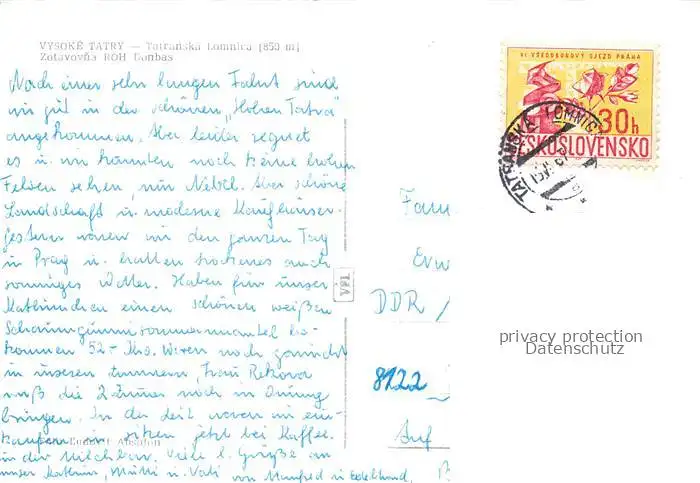 VYSOKÉ TATRY — Tatranská Lomnica [850 m]
Zotavovňa ROH Urpín
Nach einer sehr langen Fahrt sind
wir gut in der schönen „Hohen Tatra"
angekommen. Aber leider regnet
es u. wir konnten noch keine hohen
Felsen sehen, nur Nebel. Aber schöne
Landschaft u. moderne Kaufhäuser.
Gestern waren wir den ganzen Tag
in Prag u. hatten trockenes auch
sonniges Wetter. Haben für unser
Kathrinchen einen schönen weißen
be-
kommen 52,- Kčs. Waren noch
in unseren Frau
muß die 2 Zimmer noch in Ordnung
bringen. In der Zeit waren wir ein-
kaufen u. sitzen jetzt bei Kaffee
in der Milchbar. Viele l. Grüße an
unser Kathrin, Mutti u. Vati von Manfred u. Edeltraud.
VFI
Fam
DDR /
8122
Auf
VI. VŠEODBOROVÝ SJEZD PRAHA
30h
ČESKOSLOVENSKO
TATRANSKÁ LOMNICA
privacy protection
Datenschutz